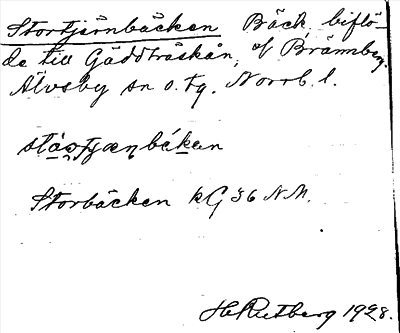 Stortjärnbäcken Bäck, biflö-
de till Gäddträskån, vf Brännberg.
Älvsby sn o. tg. Norrb. l.
Storbäcken kG 36 NM.
H Rutberg 1928.